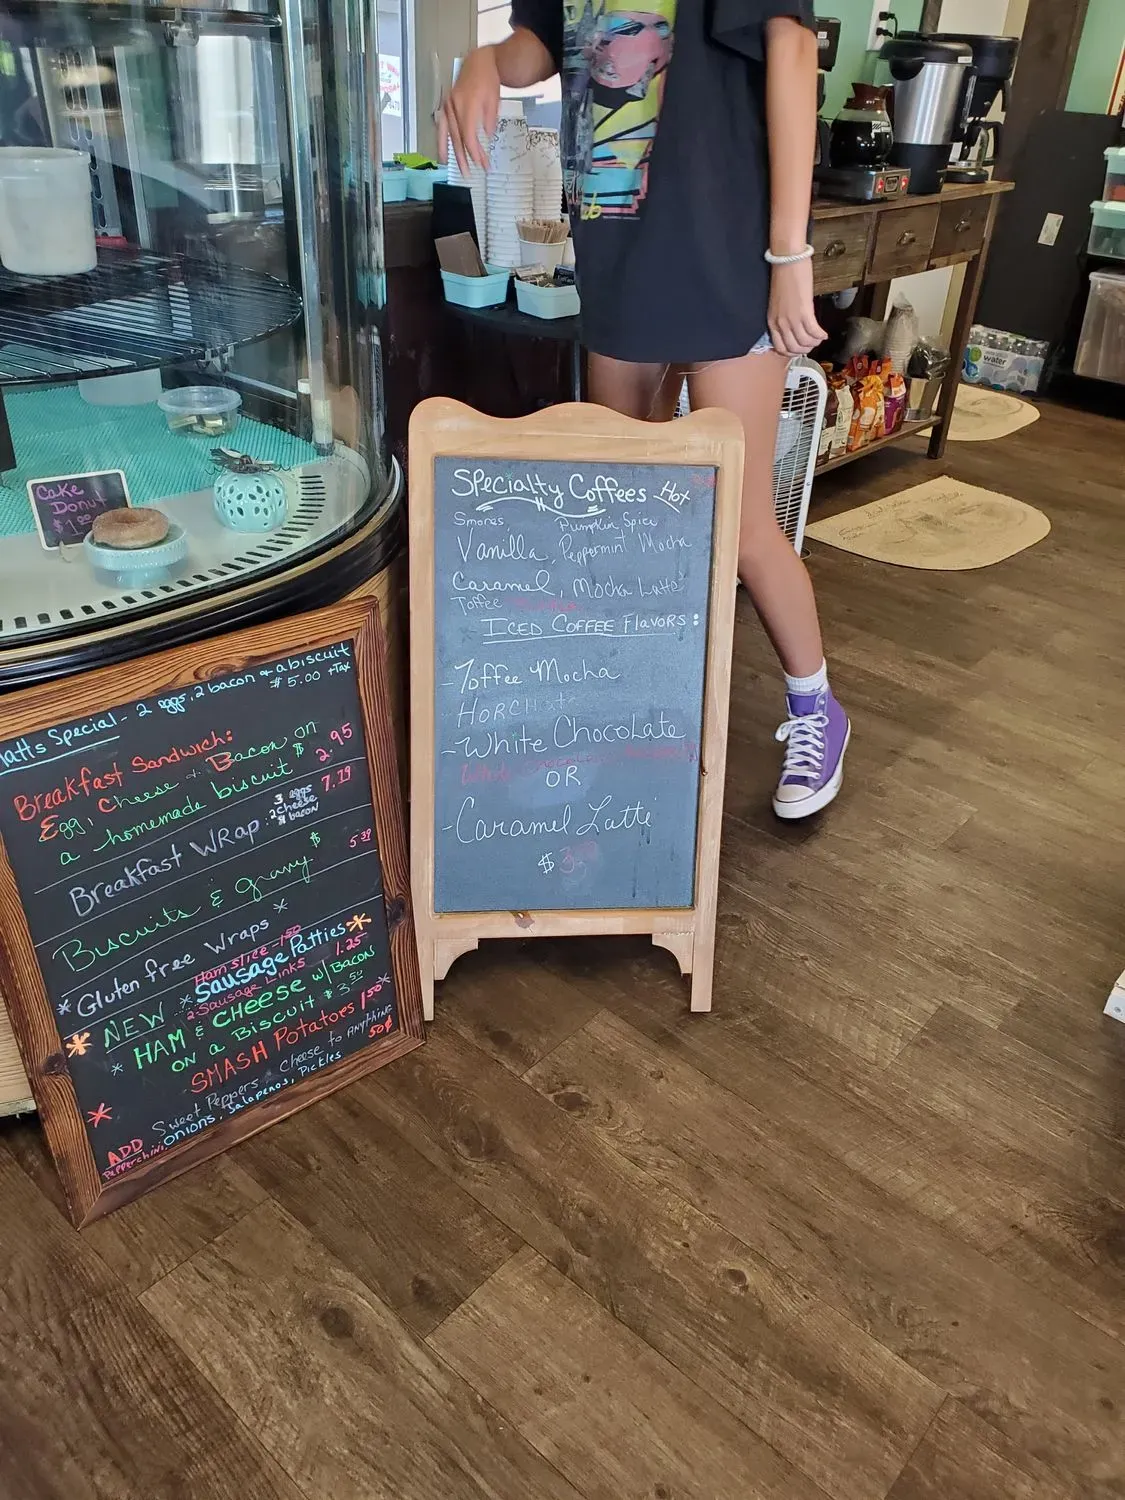 Cake
Donut
$1.00
Matts Special - 2 eggs, 2 bacon + a biscuit
$5.00 +TAX
Breakfast Sandwich:
Egg, Cheese + Bacon on
a homemade biscuit $2.95
Breakfast WRap: 3 eggs 7.19
2 cheese
bacon
Biscuits & gravy $5.39
*Gluten free Wraps*
Ham slice - 1.50
*NEW *Sausage Patties*
2-Sausage Links 1.25
*HAM & CHEESE w/ BACON
ON a BISCUIT $3.50
SMASH Potatoes 1.50*
* Sweet Peppers - Cheese to Anything 50¢
ADD Onions, Jalapenos, Pickles
Pepperchini,
Specialty Coffees Hot
Smores, Pumpkin Spice
Vanilla, Peppermint Mocha
Caramel, Mocha Latte
Toffee
ICED COFFEE Flavors:
-Toffee Mocha
HORCHata
-White Chocolate
OR
-Caramel Latte
$
water